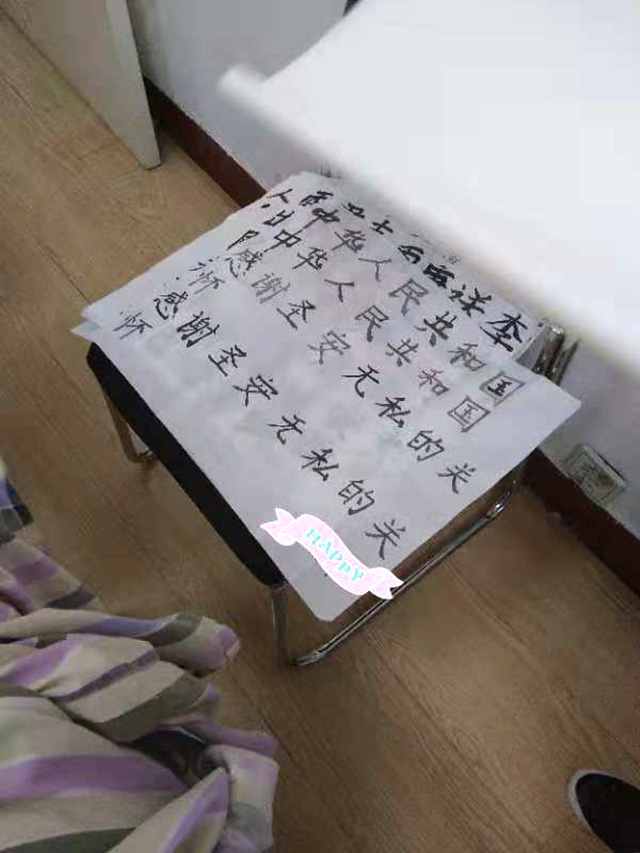 李
中华人民共和国
中华人民共和国
感谢圣安无私的关
怀
感谢圣安无私的关
怀
HAPPY